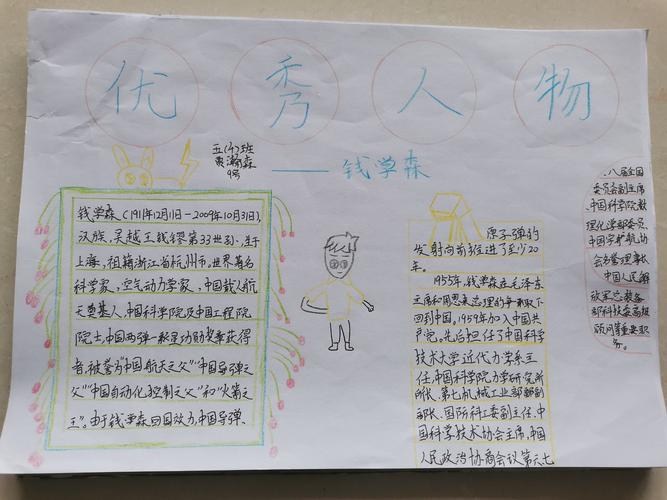 优秀人物
——钱学森
五(4)班
9号
钱学森(1911年12月11日-2009年10月31日),
汉族,吴越王钱镠第33世孙,生于
上海,祖籍浙江省杭州市。世界著名
科学家,空气动力学家,中国载人航
天奠基人,中国科学院及中国工程院
院士,中国两弹一星功勋奖章获得
者,被誉为“中国航天之父”“中国导弹之
父”“中国自动化控制之父”和“火箭之
王”。由于钱学森回国效力,中国导弹、
原子弹的
发射向前推进了至少20
年。
1955年,钱学森在毛泽东
主席和周恩来总理的争取下
回到中国。1959年加入中国共
产党,先后担任了中国科学
技术大学近代力学系主
任,中国科学院力学研究所
所长、第七机械工业部副部
部长、国防科工委副主任、中
国科学技术协会主席、中国
人民政治协商会议第六七
、八届全国
委员会副主席
中国科学院数
理化学部委员、
中国宇航协
会名誉理事长、
中国人民解
放军总装备
部科技委高级
顾问等重要职
务。